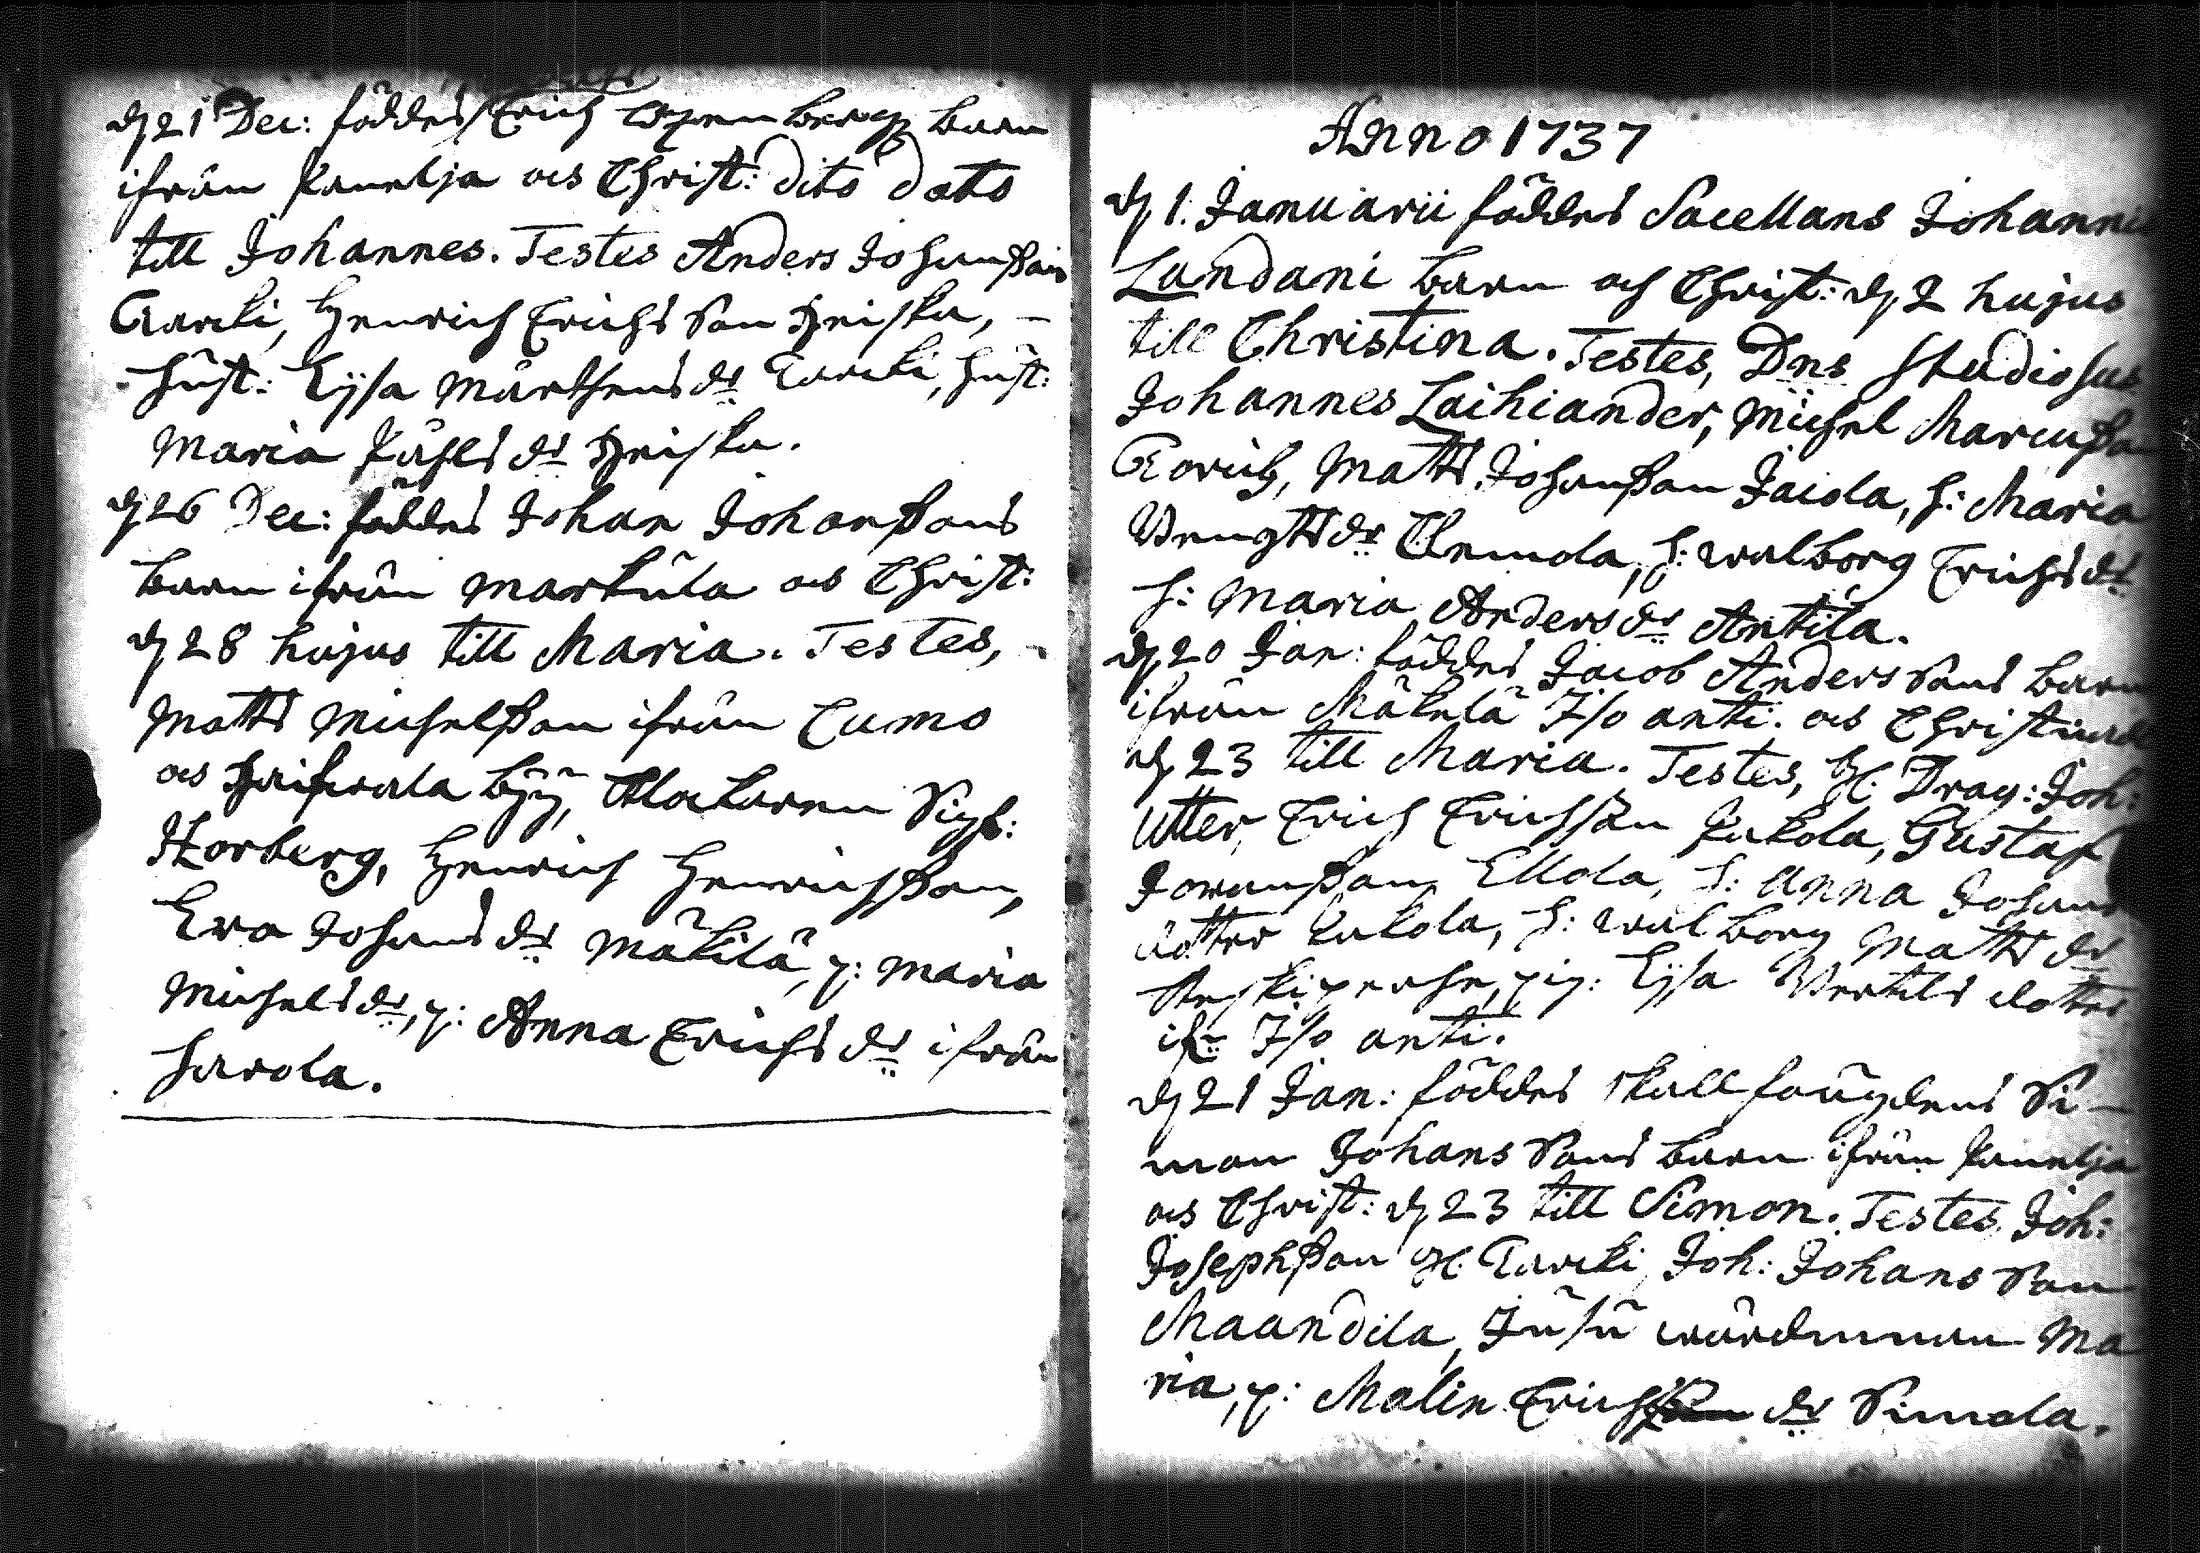 d 21 Dec: föddes Erich barn
ifrån Panelja och Christ: dito dato
till Johannes. Testes Anders Johanßon
Carcki, Henrich Erichs Son Heiska, –
hust: Lijsa Mårthens dr Carcki, hust:
Maria Påhls dr Heiska.
d 26 Dec: föddes Johan Johanßons
barn ifrån Markula och Christ:
d 28 hujus till Maria. Testes,
Matts Michelßon ifrån Cumo
och by, Makaren Sigf:
Storberg, Henrich Henrichßon,
Eva Johans dr Mäkilä, p: Maria
Michels dr, p: Anna Erichs dr ifrån
Harola.
Anno 1737
d 1. Januarii föddes Sacellans Johannis
Landani barn och Christ: d 2 hujus
till Christina. Testes, Dns Studiosus
Johannes Laihiander, Michel Marcußon
Matts Johanßon Jaiola, h: Maria
Bengts dr Clemola, h: Walborg Erichs dr
h: Maria Anders dr Antila.
d 20 Jan: föddes Jacob Anders Sons barn
ifrån Mäkelä J/o anti. och Christnad
d 23 till Maria. Testes, Drag: Joh:
Utter, Erich Erichsson Kukola, Gustaf
Joranßon Ellola, h: Anna Johans
dotter Kukola, h: Walborg Matts dr
pig: Lijsa Bertils dotter
ifr J/o anti.
d 21 Jan: föddes Skallfougdens Si-
mon Johans Sons barn ifrån Panelja
och Christ: d 23 till Simon. Testes, Joh:
Josephßon Carcki, Joh: Johans Son
Maandila, Ma
ria, p: Malin Erichs dr Simola.